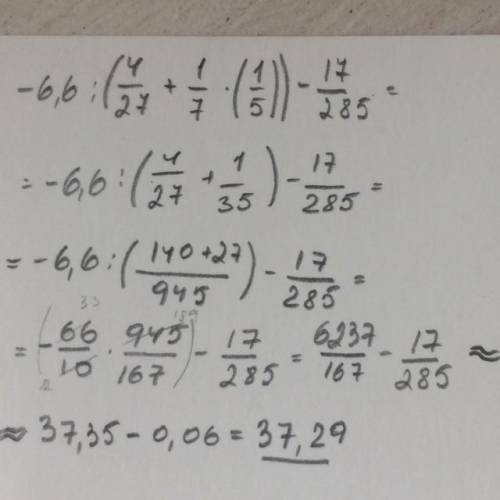 -6,6 : (4/27 + 1/7 · (1/5)) - 17/285 =
= -6,6 : (4/27 + 1/35) - 17/285 =
= -6,6 : (140+27/945) - 17/285 =
= (-66/10 · 945/167) - 17/285 = 6237/167 - 17/285 ≈
33 189 2
≈ 37,35 - 0,06 = 37,29